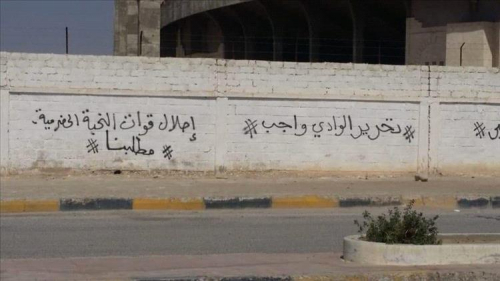 #تحرير الوادي واجب#
إحلال قوات النخبة الحضرمية.
#مطلبنا#